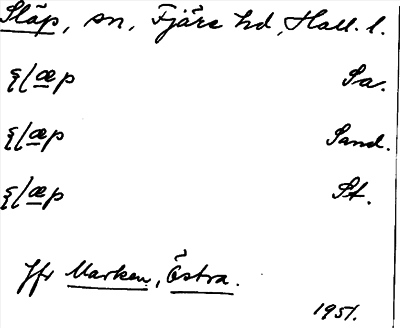 Släp, sn, Fjäre hd, Hall. l.
ʂ(æp Sa.
ʂ(æp Sand.
ʂ(æp St.
Jfr Marken, Östra.
1951.